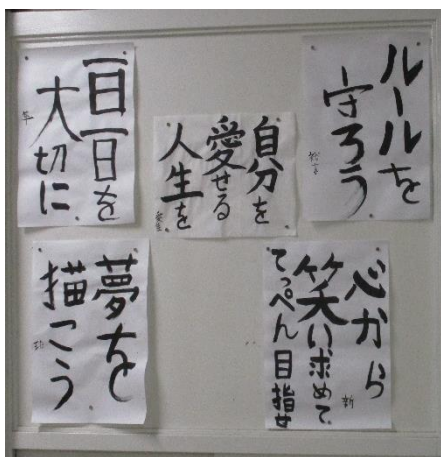 ルールを
守ろう
自分を
愛せる
人生を
一日一日を
大切に
心から
笑い求めて
てっぺん目指せ
新
夢を
描こう